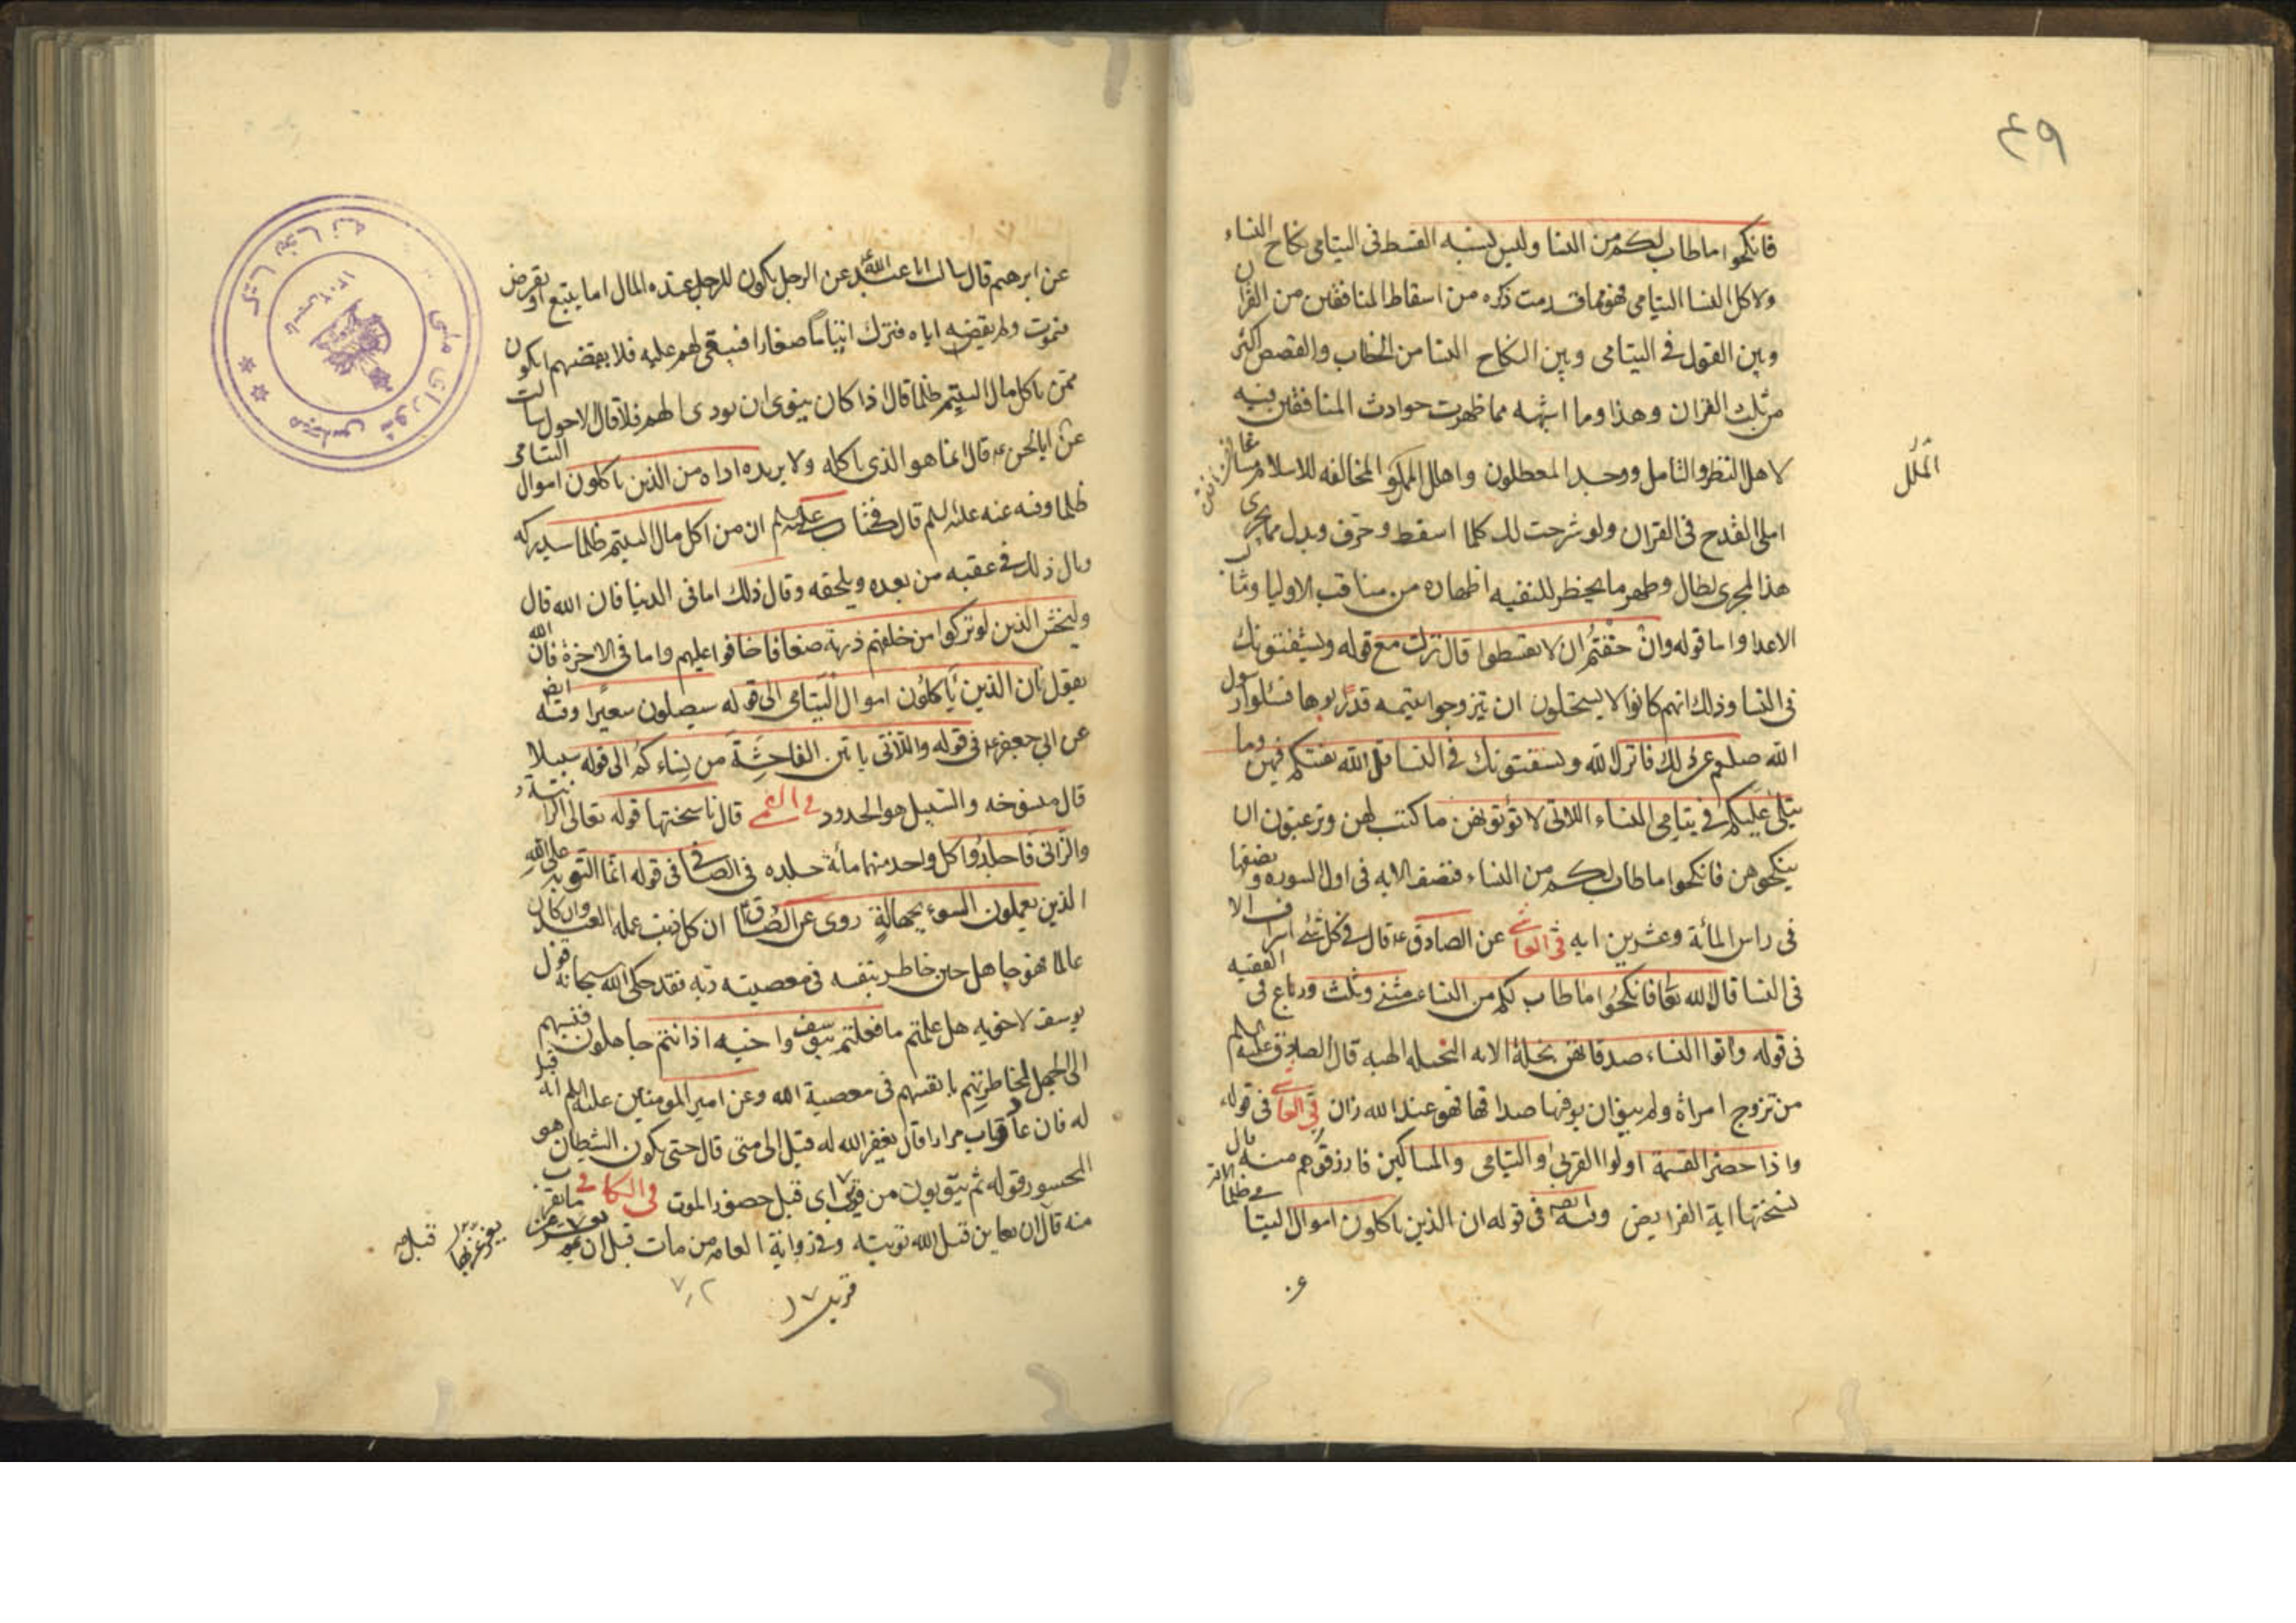 ٤٩
فانكحوا ما طاب لكم من النسا وليس يشبه القسط فى اليتامى نكاح النساء
ولا كل النسا اليتامى فهو مما قدمت ذكره من اسقاط المنافقين من القران
وبين القول فى اليتامى وبين النكاح النسا من الخطاب والقصص اكثر
من ثلث القران وهذا وما اشبهه مما ظهرت حوادث المنافقين فيه
لاهل النظر والتامل ووجد المعطلون واهل الملل المخالفه للاسلام مساغا
الملل
الى القدح فى القران ولو شرحت لك كلما اسقط وحرف وبدل مما يجرى
هذا المجرى لطال وظهر ما يحظر للتقيه اظهاره من مناقب الاوليا ومثالب
الاعدا واما قوله وان خفتم ان لا تقسطوا قال نزلت مع قوله ويستفتونك
فى النسا وذلك انهم كانوا لا يستحلون ان يتزوجوا يتيمه قد ربوها فسئلوا رسول
الله صلعم عن ذلك فانزل الله ويستفتونك فى النسا قل الله يفتيكم فيهن وما
يتلى عليكم فى يتامى النساء اللاتى لا تؤتونهن ما كتب لهن وترغبون ان
ينكحوهن فانكحوا ما طاب لكم من النساء فنصف الايه فى اول السوره ونصفها
فى راس المائة وعشرين ايه فى العياشى عن الصادق ع قال فى كل شئ اسراف الا
فى النسا قال الله تعا فانكحوا ما طاب لكم من النساء مثنى وثلث ورباع فى الفقيه
فى قوله واتوا النساء صدقاتهن نحلة الايه النحله الهبه قال الصادق عليه السلم
من تزوج امراة ولم ينو ان يوفيها صداقها فهو عند الله زان فى العياشى فى قوله
واذا حضر القسمة اولوا القربى واليتامى والمساكين فارزقوهم منه قال
نسختها اية الفرايض وفيه ايضه فى قوله ان الذين ياكلون اموال اليتامى ظلما
عن ابرهيم قال سالت ابا عبد الله عن الرجل يكون للرجل عنده المال اما يبيع او يقرض
فيموت ولم يقضه اياه فترك ايتاما صغارا فيبقى لهم عليه فلا يقضيهم ايكون
ممن ياكل مال اليتيم ظلما قال اذا كان ينوى ان يودى لهم فلا قال الاحول سالت
عن ابا الحسن ع قال انما هو الذى ياكله ولا يريد اداه من الذين ياكلون اموال اليتامى
ظلما وفيه عنه عليه السلم قال فى كتاب على عليه السلم ان من اكل مال اليتيم ظلما سيدركه
وبال ذلك فى عقبه من بعده ويلحقه وقال ذلك اما فى الدنيا فان الله قال
وليخش الذين لو تركوا من خلفهم ذرية ضعافا خافوا عليهم واما فى الاخرة فان الله
يقول ان الذين ياكلون اموال اليتامى الى قوله سيصلون سعيرا وفيه ايضه
عن ابى جعفر ع فى قوله واللاتى ياتين الفاحشة من نساءكم الى قوله سبيلا
قال منسوخه والسبيل هو الحدود فى القمى قال ناسختها قوله تعالى الزانية و
والزانى فاجلدوا كل واحد منهما مائة جلده فى الصافى فى قوله انما التوبة على الله
الذين يعملون السوء بجهالة روى عن الصادق ع ان كل ذنب عمله العبد وان كان
عالما فهو جاهل حين خاطر بنفسه فى معصية ربه فقد حكى الله سبحانه قول
يوسف لاخويه هل علمتم ما فعلتم بيوسف واخيه اذ انتم جاهلون فنسبهم
الى الجهل لمخاطرتهم بانفسهم فى معصية الله وعن امير المومنين عليه السلم انه قيل
له فان عاد وتاب مرارا قال يغفر الله له قيل الى متى قال حتى يكون الشيطان هو
المحسور قوله ثم يتوبون من قريب اى قبل حضور الموت فى الكافى
منه قال ان يعاين قبل الله توبته وفى رواية العامه من مات قبل ان
يغرغر بها قبل
قريب